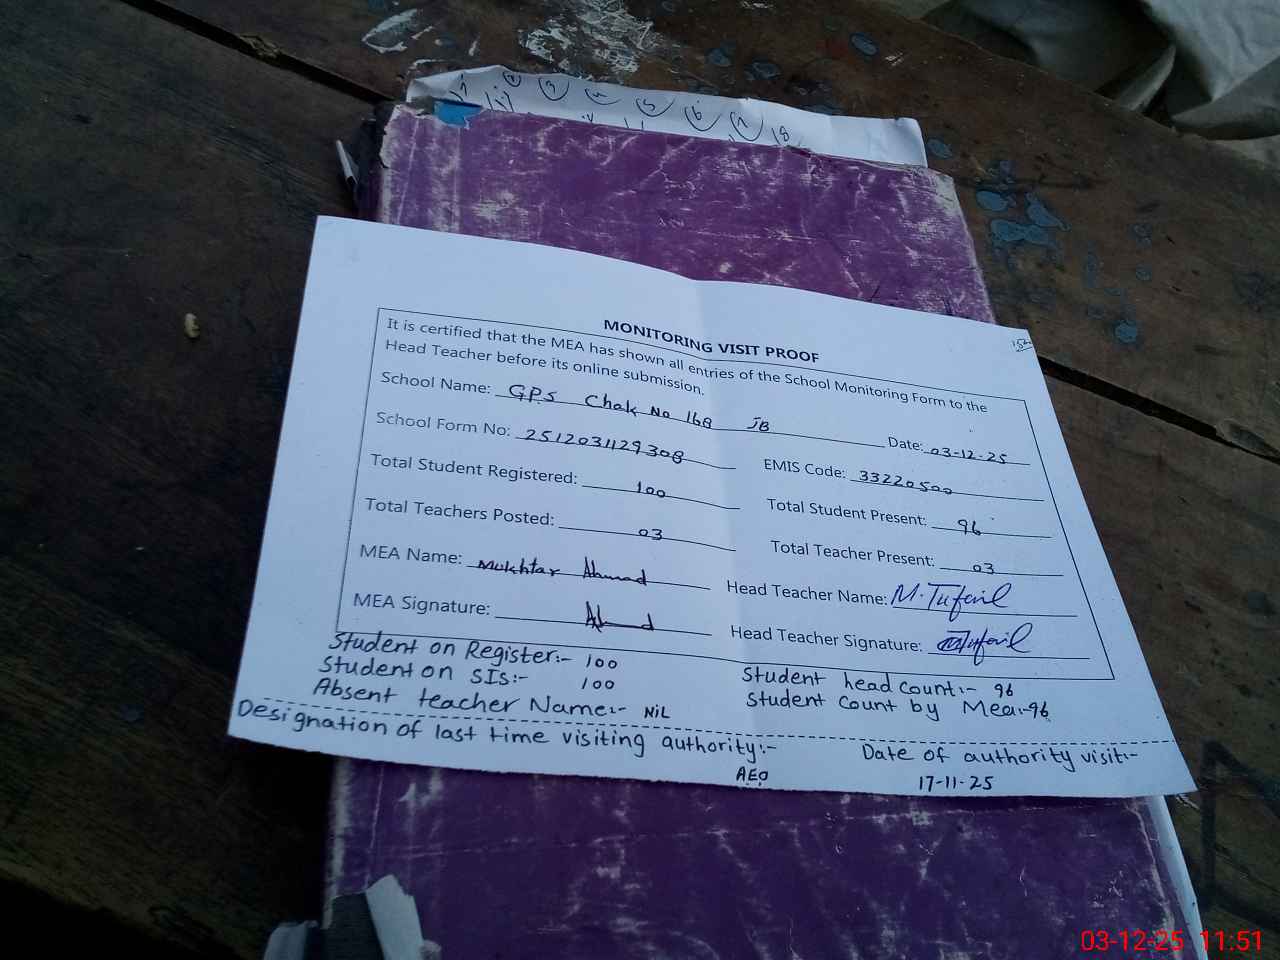 2 3 4 5 6 7 18
MONITORING VISIT PROOF
It is certified that the MEA has shown all entries of the School Monitoring Form to the
Head Teacher before its online submission.
School Name: GPS Chak No 168 JB Date: 03-12-25
School Form No: 2512031129308 EMIS Code: 33220500
Total Student Registered: 100 Total Student Present: 96
Total Teachers Posted: 03 Total Teacher Present: 03
MEA Name: Mukhtar Ahmad Head Teacher Name: M. Tufail
MEA Signature: Ahmad Head Teacher Signature: Tufail
Student on Register:- 100 Student head count:- 96
Student on SIS:- 100 Student Count by Mea:-96
Absent teacher Name:- NiL
Designation of last time visiting authority:- Date of authority visit:-
AEO 17-11-25
03-12-25 11:51